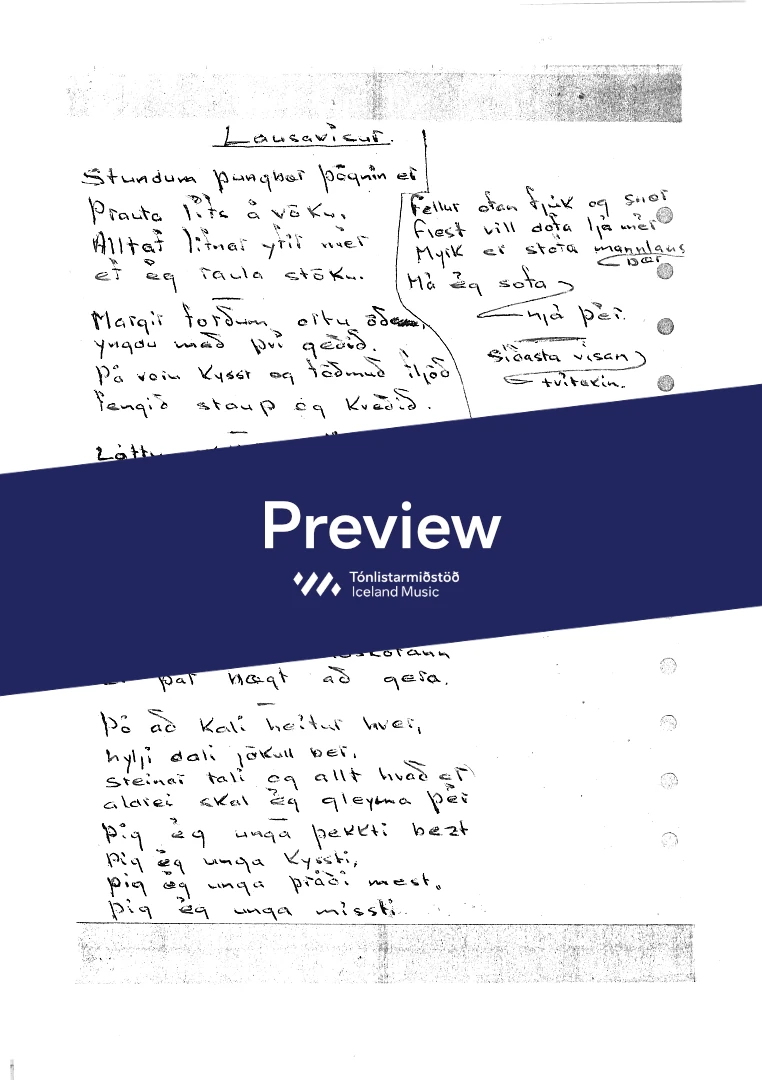 Lausavísur.
Stundum þungbær þögnin er
Þrauta lífs á vöku,
Alltaf lifnar yfir mér
ef ég raula stöku.
Margir forðum ortu
yngdu með því geðið.
Þá voru kysst og föðmuð fljóð
fengið staup og kveðið.
Láttu
Fellur ofan fjúk og snór
flest vill dofa ljá mér
Myrk er stofa mannlaus
bær
Má ég sofa
hjá þér.
Síðasta vísan
tvítekin.
Preview
Tónlistarmiðstöð
Iceland Music
þar nægt að gera.
Þó að kali heitur hver,
hylji dali jökull ber,
steinar tali og allt hvað er
aldrei skal ég gleyma þér
Þig ég unga þekkti bezt
Þig ég unga kyssti,
þig ég unga þráði mest,
þig ég unga missti.